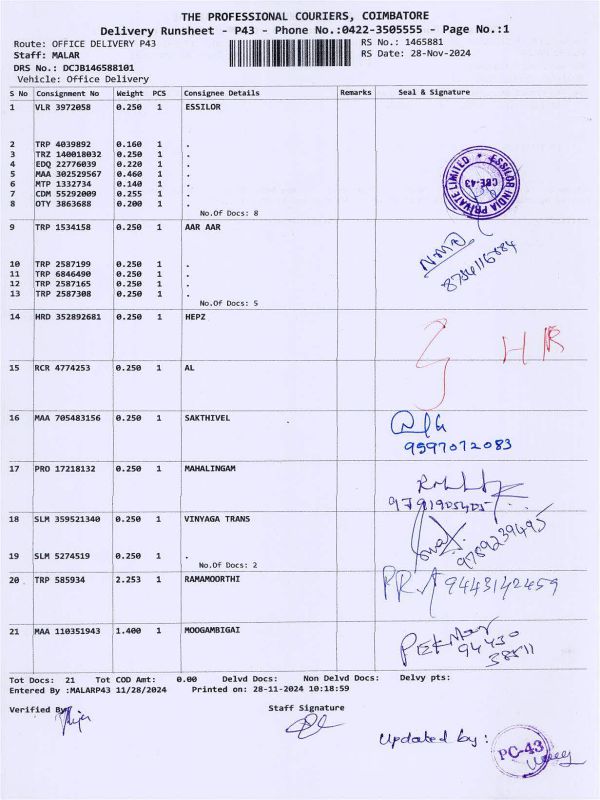 THE PROFESSIONAL COURIERS, COIMBATORE
Delivery Runsheet - P43 - Phone No.:0422-3505555 - Page No.:1
Route: OFFICE DELIVERY P43 RS No.: 1465881
Staff: MALAR RS Date: 28-Nov-2024
DRS No.: DCJB146588101
Vehicle: Office Delivery
S No Consignment No Weight PCS Consignee Details Remarks Seal & Signature
1 VLR 3972058 0.250 1 ESSILOR
2 TRP 4039892 0.160 1 .
3 TRZ 140018032 0.250 1 .
4 EDQ 22776039 0.220 1 .
5 MAA 302529567 0.460 1 .
6 MTP 1332734 0.140 1 .
7 CDM 55292009 0.255 1 .
8 OTY 3863688 0.200 1 .
No.Of Docs: 8
ESSILOR INDIA PRIVATE LIMITED
CBE-43
9 TRP 1534158 0.250 1 AAR AAR
10 TRP 2587199 0.250 1 .
11 TRP 6846490 0.250 1 .
12 TRP 2587165 0.250 1 .
13 TRP 2587308 0.250 1 .
No.Of Docs: 5
14 HRD 352892681 0.250 1 HEPZ
HR
15 RCR 4774253 0.250 1 AL
16 MAA 705483156 0.250 1 SAKTHIVEL
9597072083
17 PRO 17218132 0.250 1 MAHALINGAM
18 SLM 359521340 0.250 1 VINYAGA TRANS
9789239495
19 SLM 5274519 0.250 1 .
No.Of Docs: 2
20 TRP 585934 2.253 1 RAMAMOORTHI
9443142459
21 MAA 110351943 1.400 1 MOOGAMBIGAI
94430
38511
Tot Docs: 21 Tot COD Amt: 0.00 Delvd Docs: Non Delvd Docs: Delvy pts:
Entered By :MALARP43 11/28/2024 Printed on: 28-11-2024 10:18:59
Verified By Staff Signature
Updated by :
PC-43